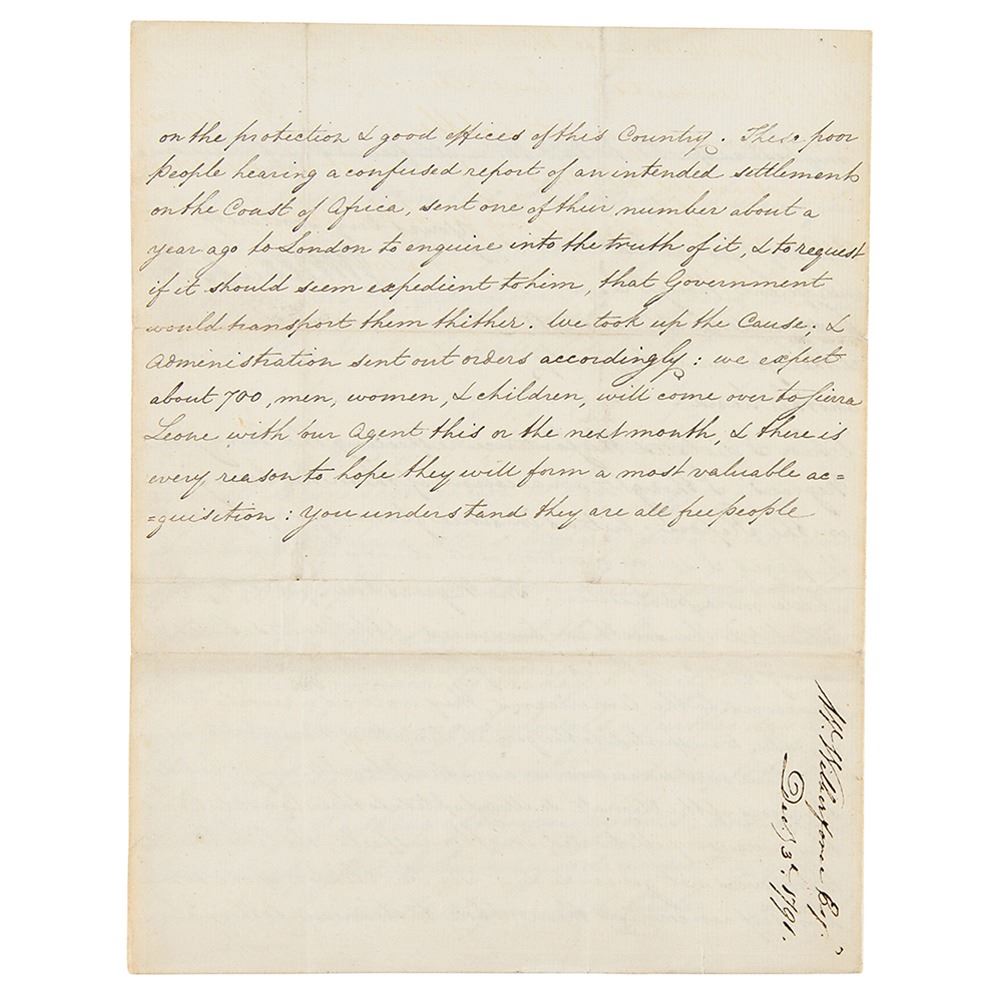 on the protection & good offices of this Country. These poor
People hearing a confused report of an intended settlement
on the Coast of Africa, sent one of their number about a
year ago to London to enquire into the truth of it, & to request
if it should seem expedient to him, that Government
would transport them thither. We took up the Cause, &
Administration sent out orders accordingly: we expect
about 700, men, women, & children, will come over to Sierra
Leone with our Agent this or the next month, & there is
every reason to hope they will form a most valuable ac=
=quisition: You understand they are all free people
Wm. Wilberforce Esq.
Decr. 3d. 1791.